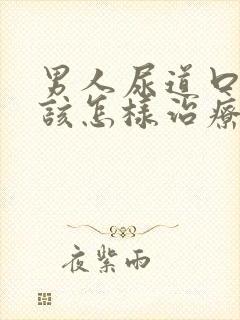 男人尿道口
該怎樣治療
夜紫雨